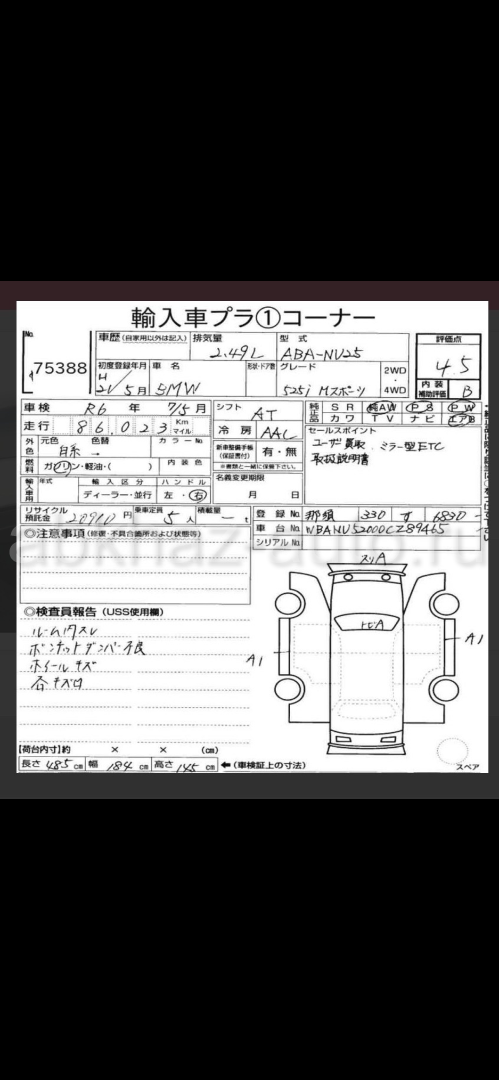 輸入車プラ①コーナー
No.
75388
車歴(自家用以外は記入) 排気量 型式 評価点
2.49L ABA-NU25 4.5
初度登録年月 車名 形状・ドア数 グレード 2WD・4WD 内装補助評価
H 21/5月 BMW 525i Mスポーツ B
車検 R6年 7/5月 シフト AT 純正品 SR 純AW PS PW
走行 86,023 Km マイル 冷房 AAC カワ TV ナビ エアB
外色 元色 色替 カラーNo. 新車整備手帳(保証書付) 有・無 セールスポイント
自系 → ※書類と一緒に保管下さい。 ユーザー買取 ミラー型ETC
燃料 ガソリン・軽油・( ) 内装色 名義変更期限 取扱説明書
輸入車用 年式 輸入区分 ハンドル 月 日
ディーラー・並行 左・右
リサイクル預託金 円 乗車定員 5人 積載量 t 登録No. 那須 330 す 6830
車台No. WBANU52000CZ89465
シリアルNo.
◎注意事項(修復・不具合箇所および状態等)
◎検査員報告(USS使用欄)
ルーム内スレ
ボンネットダンパー不良
ホイールキズ
各キズ凹
スリA
トビA
A1
A1
【荷台内寸】約 × × (cm)
長さ 485cm 幅 184cm 高さ 145cm ←(車検証上の寸法)
スペア